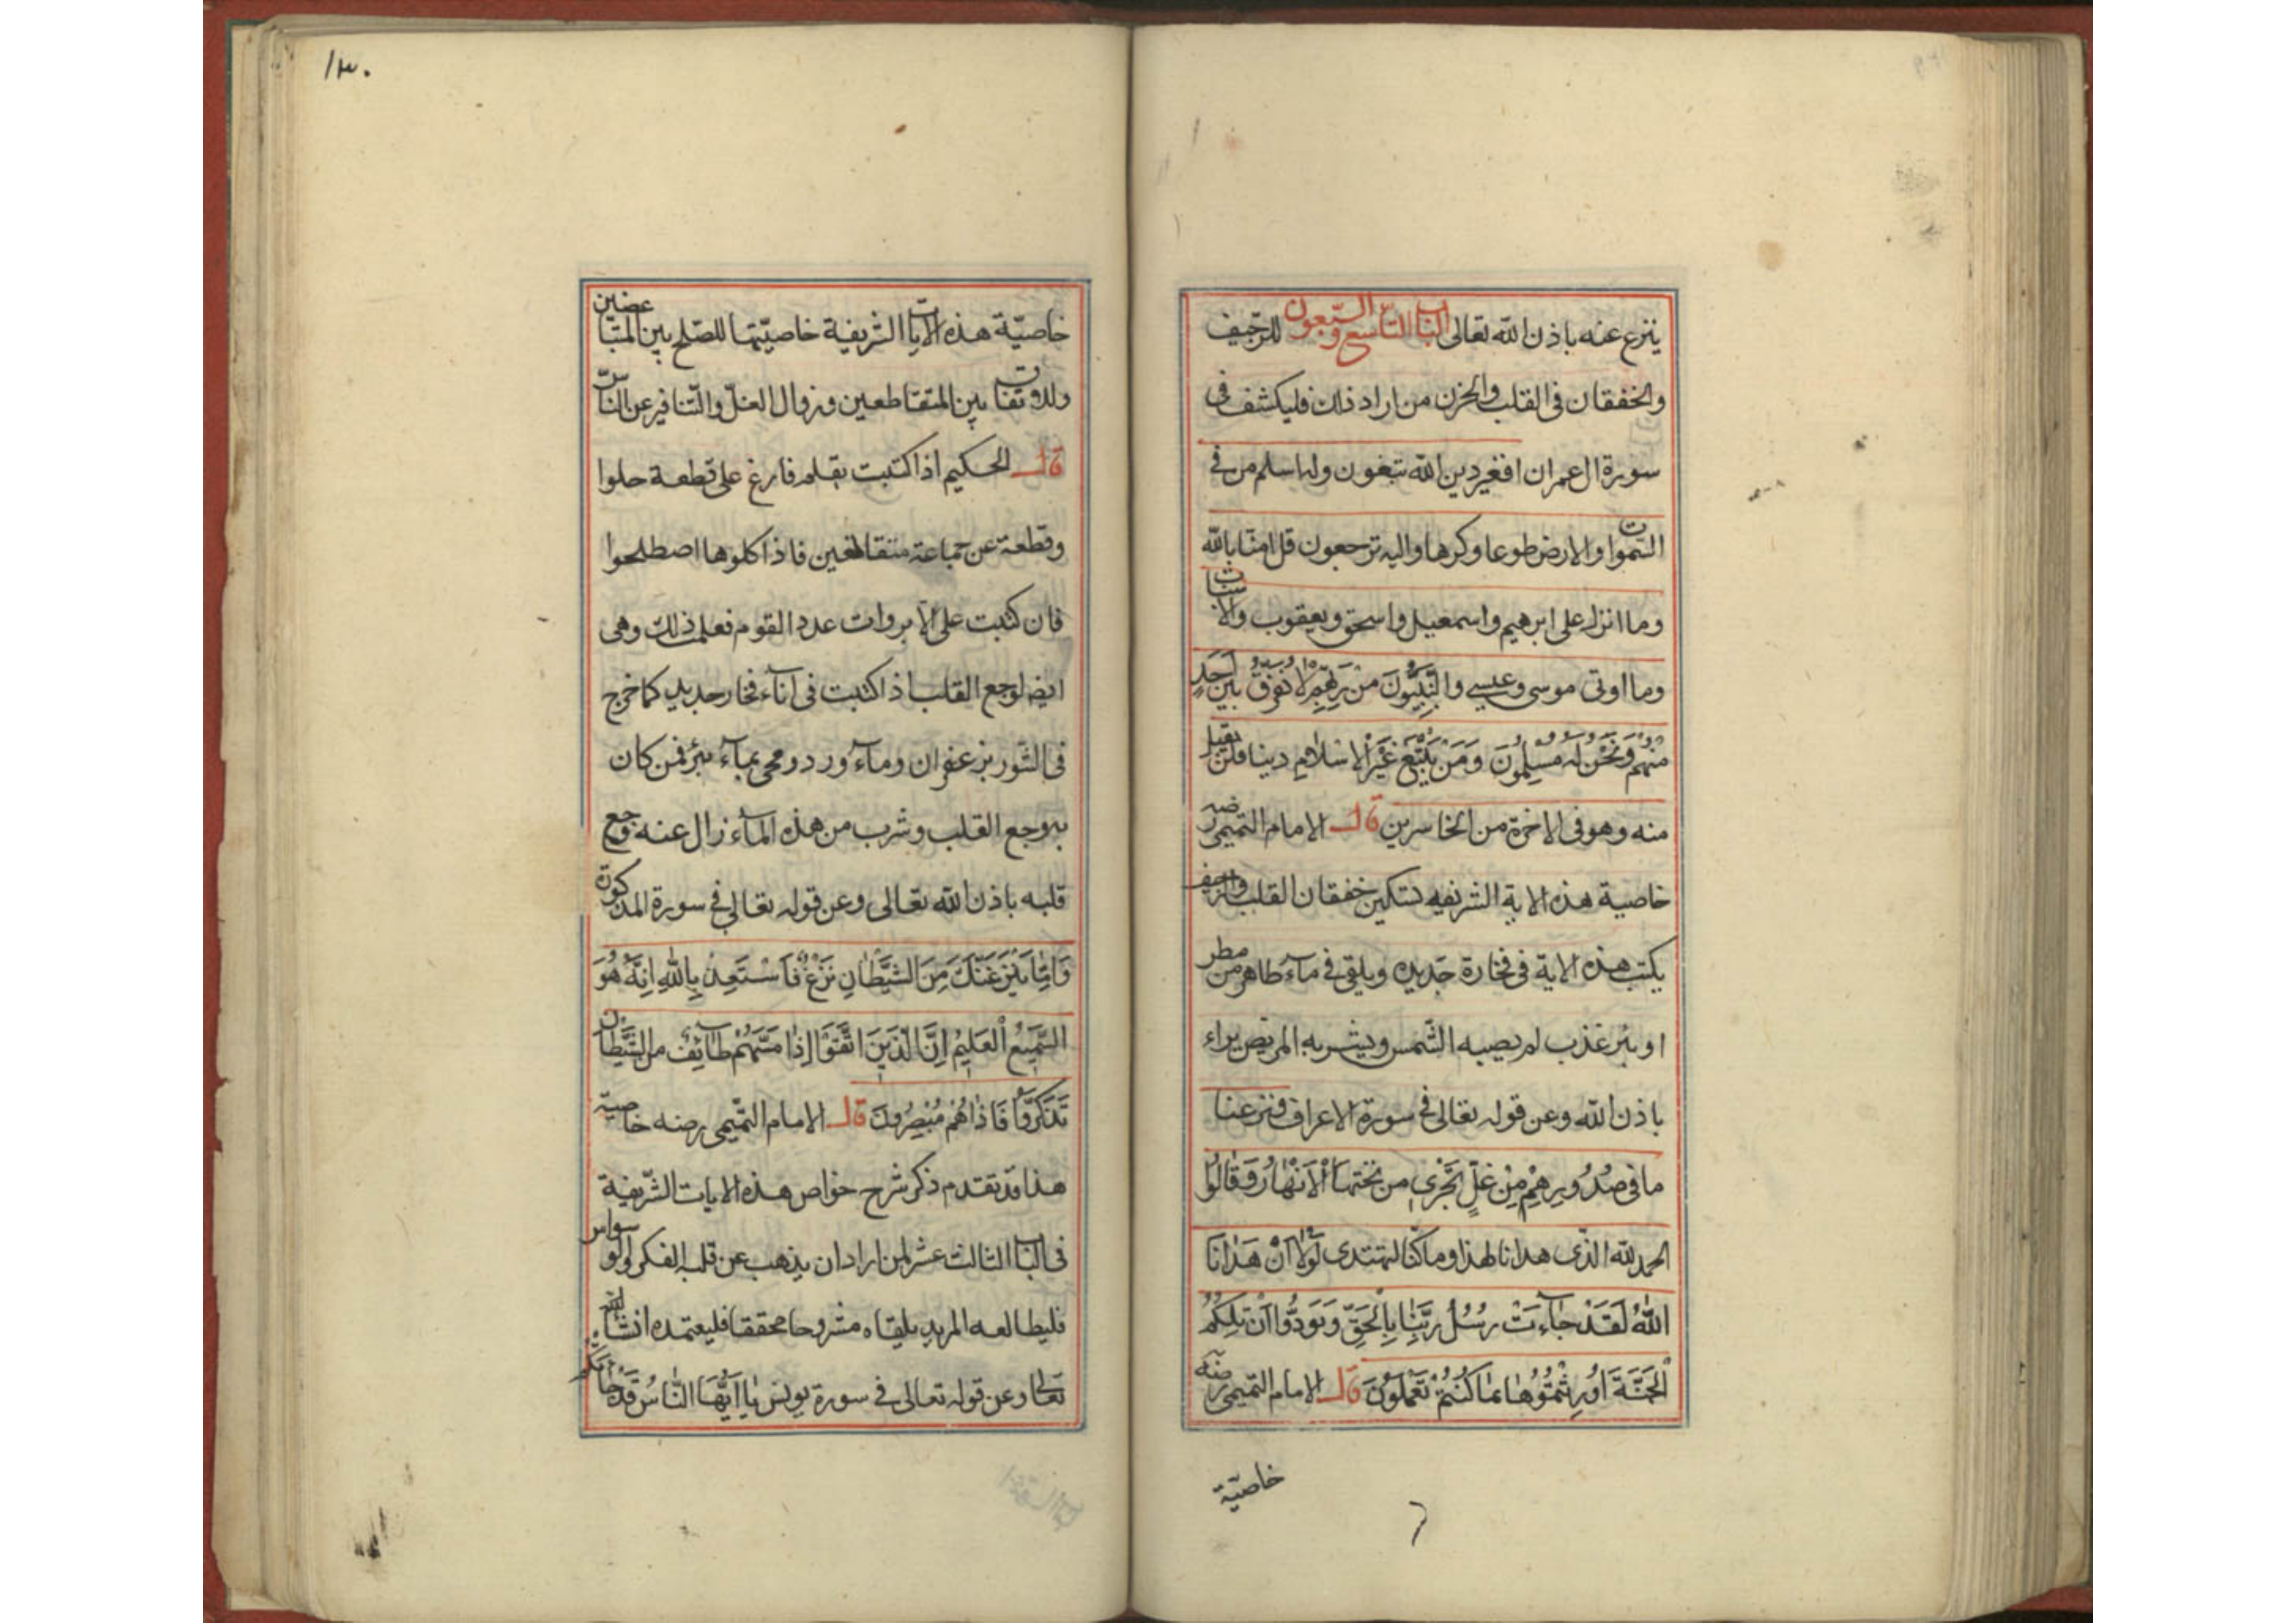 ينزع عنه باذن الله تعالى الباب التاسع والسبعون للرجيف
والخفقان فى القلب والحزن من اراد ذلك فليكشف فى
سورة ال عمران افغير دين الله تبغون وله اسلم من فى
السموات والارض طوعا وكرها واليه ترجعون قل امنا بالله
وما انزل على ابرهيم واسمعيل واسحق ويعقوب والاسباط
وما اوتى موسى وعيسى والنَّبِيُّونَ مِنْ رَبِّهِمْ لَا نُفَرِّقُ بَيْنَ اَحَدٍ
مِنْهُمْ وَنَحْنُ لَهُ مُسْلِمُونَ وَمَنْ يَبْتَغِ غَيْرَ الْاِسْلَامِ دينا فلن يقبل
منه وهو فى الاخرة من الخاسرين قال الامام التميمى رضه
خاصية هذه الاية الشريفه تسكين خفقان القلب والرجيف
يكتب هذه الاية فى فخارة جديده ويلقى فى مآء طاهر من مطر
او بئر عذب لم يصبه الشمس ويشربه المريض يبراء
باذن الله وعن قوله تعالى فى سورة الاعراف ونزعنا
ما فى صُدُورِهِمْ مِنْ غِلٍّ تَجْرِى من تحتها الْاَنْهَارُ وَقَالُوا
الحمد لله الذى هدانا لهذا وما كنا لنهتدى لَوْلَا اَنْ هَدٰانَا
اللهُ لَقَدْ جَآءَتْ رُسُلُ رَبِّنَا بِالْحَقِّ وَنُودُوا اَنْ تِلْكُمُ
الْجَنَّةَ اُورِثْتُمُوهَا بِمَا كُنْتُمْ تَعْمَلُونَ قال الامام التميمى رضه
خاصيّة
١٣٠
خاصيّة هذه الايات الشريفة خاصيّتها للصلح بين المتباغضين
بين المتقاطعين وزوال الغل والتنافر عن الناس
قال الحكيم اذا كتبت بقلم فارغ على قطعة حلوا
وقطعة عن جماعة متقاطعين فاذا اكلوها اصطلحوا
فان كتبت على عدد القوم فعلت ذلك وهى
ايضا لوجع القلب اذا كتبت فى انآء فخار جديد كما خرج
فى التنور بزعفران ومآء ورد ومحى بمآء بئر فمن كان
به وجع القلب وشرب من هذه المآء زال عنه وجع
قلبه باذن الله تعالى وعن قوله تعالى فى سورة المذكورة
وَاِمَّا يَنْزَغَنَّكَ مِنَ الشَّيْطَانِ نَزْغٌ فَاسْتَعِذْ بِاللهِ اِنَّهُ هُوَ
السَّمِيعُ الْعَلِيمُ اِنَّ الَّذِينَ اتَّقَوْا اِذَا مَسَّهُمْ طَآئِفٌ من الشَّيْطَان
تَذَكَّرُوا فَاِذَا هُمْ مُبْصِرُونَ قال الامام التميمى رضه خاصية
هذا قد تقدم ذكر شرح خواص هذه الايات الشريفة
فى الباب الثالث عشر لمن اراد ان يذهب عن قلبه الفكر والوسواس
فليطالعه المريد يلقاه مشروحا محققا فليعتمده انشآء الله
تعالى وعن قوله تعالى فى سورة يونس يَا اَيُّهَا النَّاسُ قَدْ جَآءَتْكُمْ